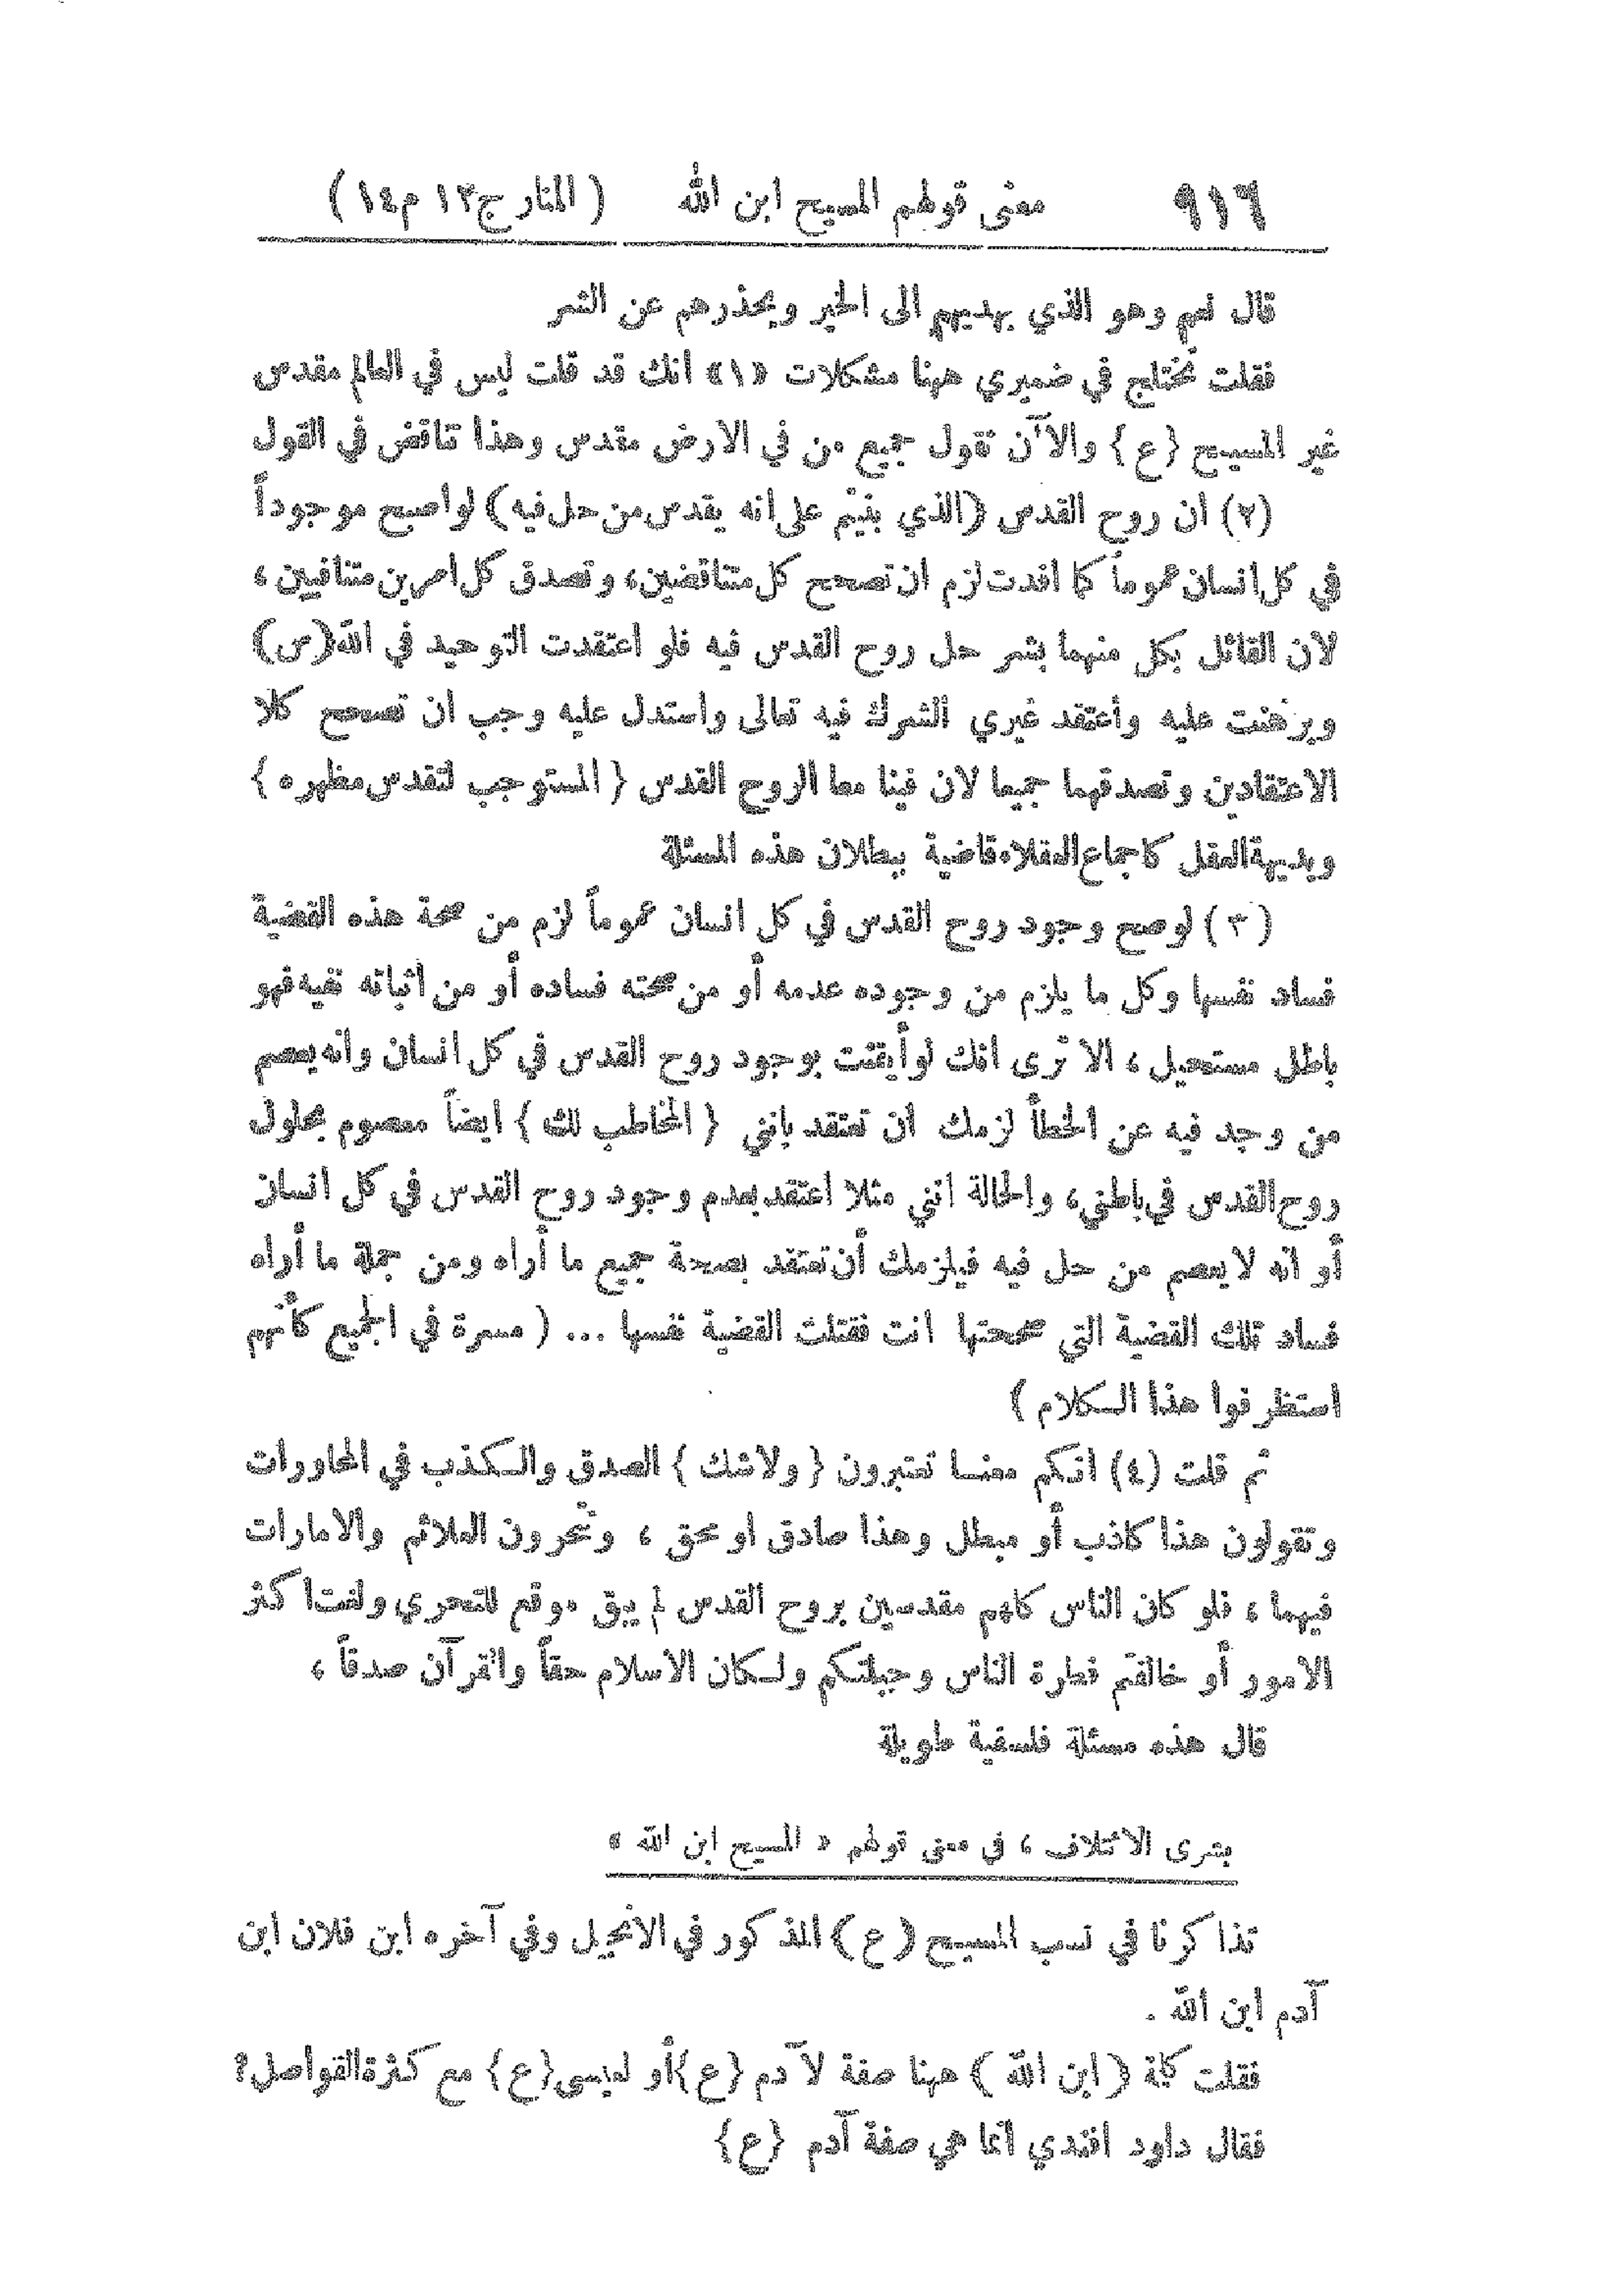 ٩١٦ معنى قولهم المسيح ابن الله (المنار ج١٢ م١٤)
قال نعم وهو الذي يهديهم الى الخير ويحذرهم عن الشر
فقلت تختلج في ضميري ههنا مشكلات «١» انك قد قلت ليس في العالم مقدس
غير المسيح {ع} والآن تقول جميع من في الارض مقدس وهذا تناقض في القول
(٢) ان روح القدس (الذي بنيتم على انه يقدس من حل فيه) لو اصبح موجوداً
في كل انسان عموماً كما افدت لزم ان تصحح كل متناقضين، وتصدق كل امرين متنافيين،
لان القائل بكل منهما بشر حل روح القدس فيه فلو اعتقدت التوحيد في الله (س)
وبرهنت عليه وأعتقد غيري الشرك فيه تعالى واستدل عليه وجب ان تصحح كلا
الاعتقادين وتصدقهما جميعا لان فينا معا الروح القدس {المستوجب لتقدس مظهره}
وبديهة العقل كاجماع العقلاء قاضية ببطلان هذه المسئلة
(٣) لو صح وجود روح القدس في كل انسان عموماً لزم من صحة هذه القضية
فساد نفسها وكل ما يلزم من وجوده عدمه أو من صحته فساده أو من اثباته نفيه فهو
باطل مستحيل، الا ترى انك لو أيقنت بوجود روح القدس في كل انسان وانه يعصم
من وجد فيه عن الخطأ لزمك ان تعتقد بانني {المخاطب لك} ايضاً معصوم بحلول
روح القدس في باطني، والحالة انني مثلا اعتقد بعدم وجود روح القدس في كل انسان
أو انه لا يعصم من حل فيه فيلزمك أن تعتقد بصحة جميع ما أراه ومن جملة ما أراه
فساد تلك القضية التي صححتها انت فقتلت القضية نفسها ... (مسرة في الجميع كأنهم
استظرفوا هذا الكلام)
ثم قلت (٤) انكم معنا تعتبرون {ولا شك} الصدق والكذب في المحاورات
وتقولون هذا كاذب أو مبطل وهذا صادق او محق، وتتحرون العلائم والامارات
فيهما، فلو كان الناس كلهم مقدسين بروح القدس لم يبق موقع للتحري ولغت اكثر
الامور أو خالفتم فطرة الناس وجبلتكم ولكان الاسلام حقاً والقرآن صدقاً،
قال هذه مسئلة فلسفية طويلة
بشرى الائتلاف، في معنى قولهم «المسيح ابن الله»
تذاكرنا في نسب المسيح (ع) المذكور في الانجيل وفي آخره ابن فلان ابن
آدم ابن الله .
فقلت كلمة (ابن الله) ههنا صفة لآدم {ع} أو لعيسى {ع} مع كثرة الفواصل؟
فقال داود افندي انما هي صفة آدم {ع}